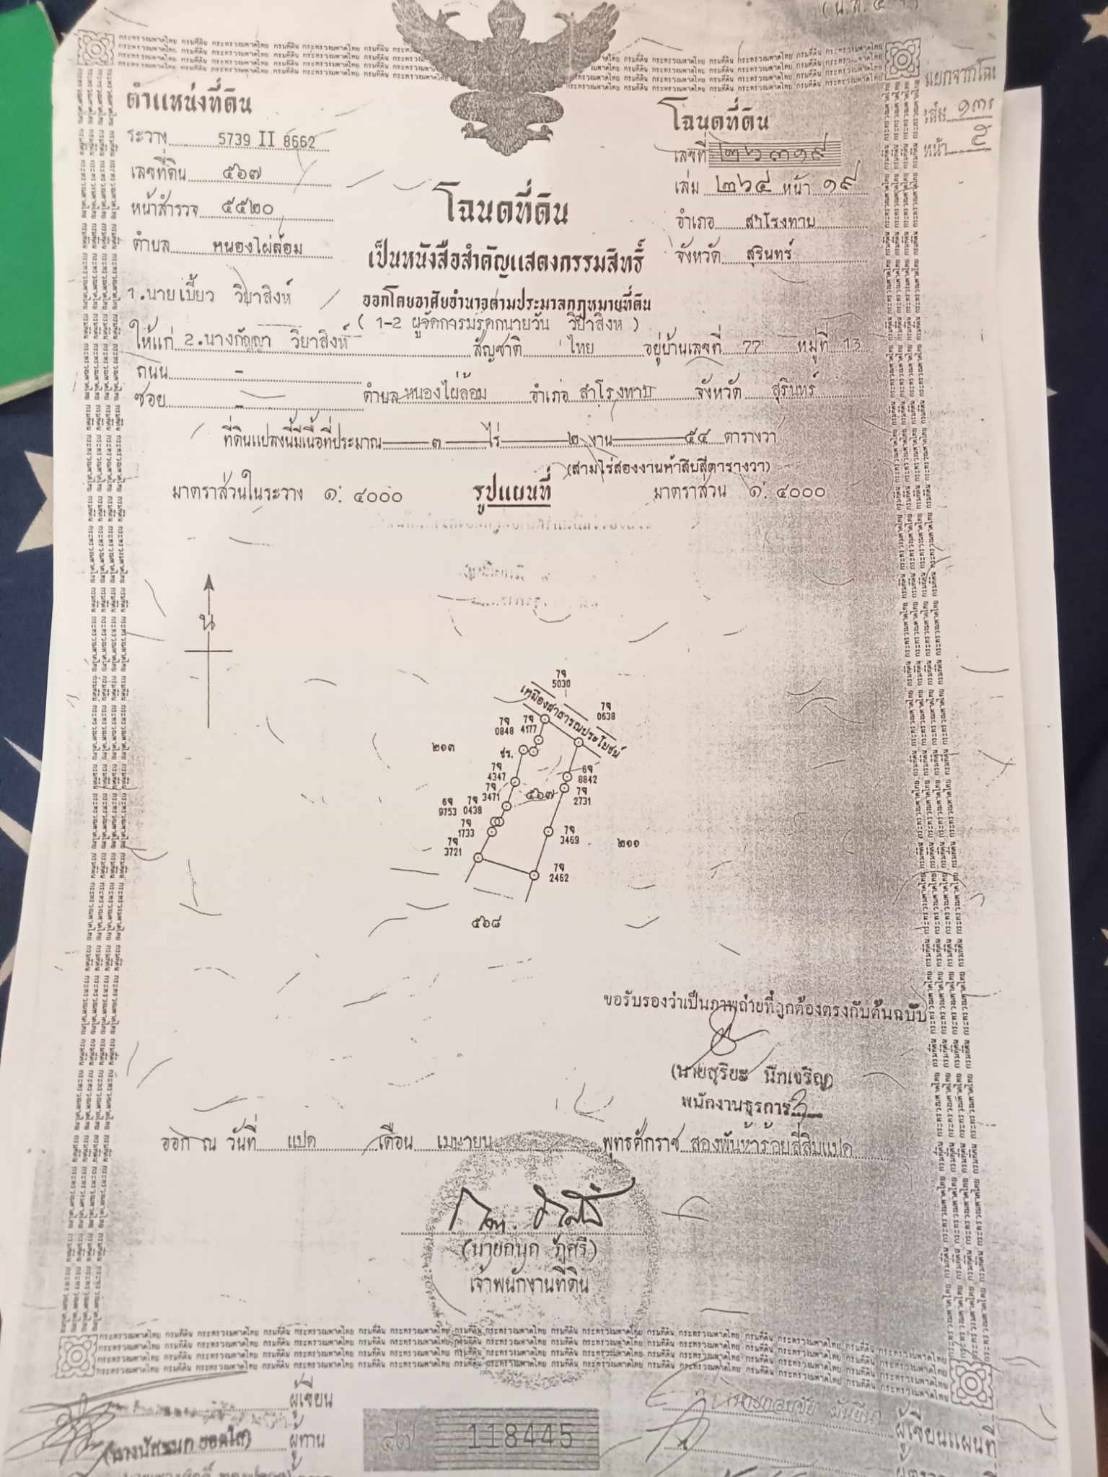 ตำแหน่งที่ดิน
ระวาง 5739 II 8662
เลขที่ดิน ๕๖๗
หน้าสำรวจ ๕๕๒๐
ตำบล หนองไผ่ล้อม
โฉนดที่ดิน
เลขที่ ๒๖๓๑๙
เล่ม ๒๖๔ หน้า ๑๙
อำเภอ สำโรงทาบ
จังหวัด สุรินทร์
หน้า ๕
โฉนดที่ดิน
เป็นหนังสือสำคัญแสดงกรรมสิทธิ์
ออกโดยอาศัยอำนาจตามประมวลกฎหมายที่ดิน
1.นายเบี้ยว วิยาสิงห์
( 1-2 ผู้จัดการมรดกนายวัน วิยาสิงห์ )
ให้แก่ 2.นางกัญญา วิยาสิงห์ สัญชาติ ไทย อยู่บ้านเลขที่ 77 หมู่ที่ 13
ถนน -
ซอย - ตำบล หนองไผ่ล้อม อำเภอ สำโรงทาบ จังหวัด สุรินทร์
ที่ดินแปลงนี้มีเนื้อที่ประมาณ ๓ ไร่ ๒ งาน ๕๔ ตารางวา
(สามไร่สองงานห้าสิบสี่ตารางวา)
มาตราส่วนในระวาง ๑: ๔๐๐๐ รูปแผนที่ มาตราส่วน ๑: ๔๐๐๐
น
7จ 5030
เหมืองสาธารณประโยชน์
7จ 0638
7จ 0848
7จ 4177
๒๑๓
ชร.
7จ 4347
6จ 8842
7จ 3471
๕๖๗
7จ 2731
6จ 9753
7จ 0438
7จ 1733
7จ 3469
๒๑๑
7จ 3721
7จ 2462
๕๖๘
ขอรับรองว่าเป็นภาพถ่ายที่ถูกต้องตรงกับต้นฉบับ
(นายสุริยะ นึกเจริญ)
พนักงานธุรการ 3
ออก ณ วันที่ แปด เดือน เมษายน พุทธศักราช สองพันห้าร้อยสี่สิบแปด
เจ้าพนักงานที่ดิน
ผู้เขียน
ผู้ทาน
๔๗ 118445
ผู้เขียนแผนที่